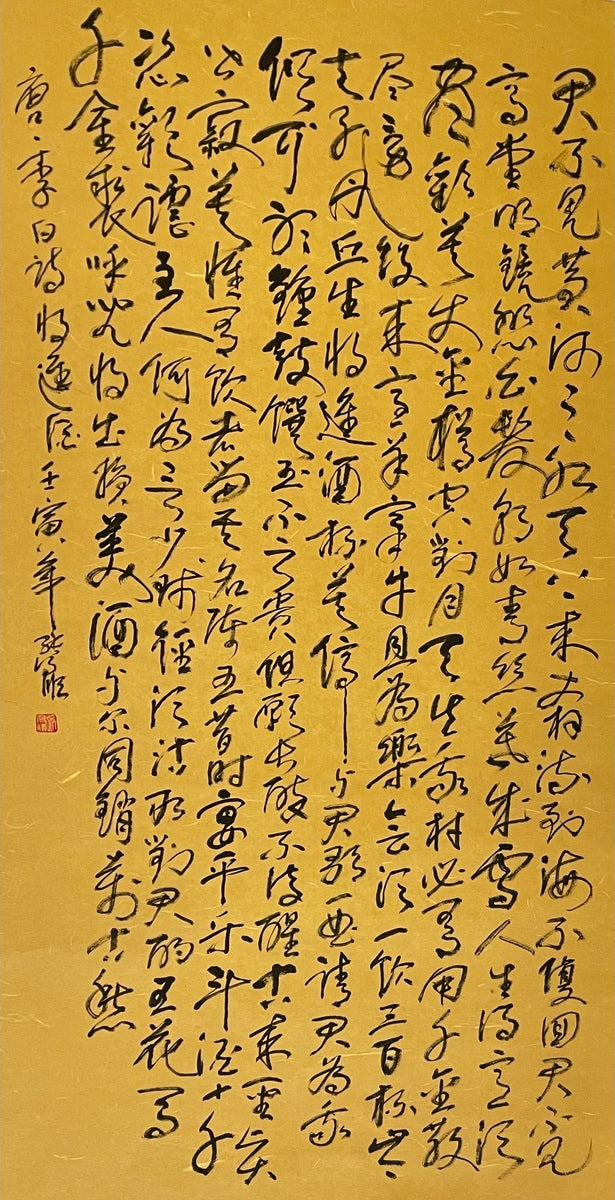 君不見黄河之水天上来奔流到海不復回君不見
高堂明鏡悲白髮朝如青絲暮成雪人生得意須
盡歡莫使金樽空對月天生我材必有用千金散
尽還復来烹羊宰牛且為樂會須一飲三百杯岑
夫子丹丘生将進酒杯莫停与君歌一曲請君為我
傾耳聽鐘鼓饌玉不足貴但願長醉不復醒古来聖賢
皆寂寞惟有飲者留其名陳王昔時宴平乐斗酒十千
恣歡謔主人何為言少錢徑須沽取對君酌五花馬
千金裘呼兒将出換美酒与尔同銷萬古愁
唐李白詩将進酒壬寅年